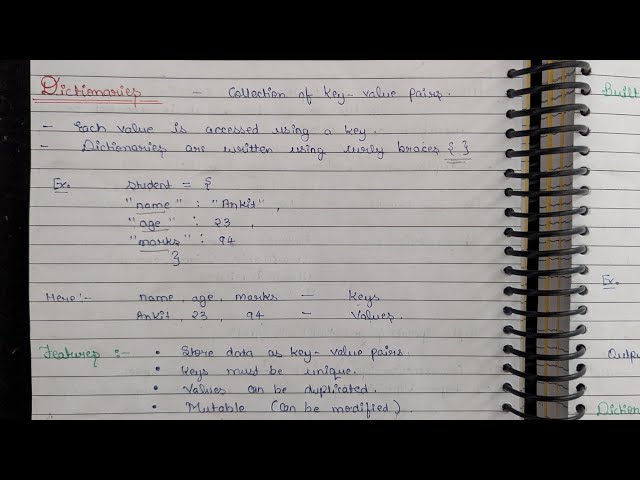 Dictionaries - Collection of key-value pairs.
- Each value is accessed using a key.
- Dictionaries are written using curly braces { }
Ex. student = {
"name" : "Ankit",
"age" : 23 ,
"marks" : 94
}
Here :- name, age, marks - keys
Ankit, 23, 94 - values.
Features :- • Store data as key-value pairs.
• Keys must be unique.
• Values can be duplicated.
• Mutable (can be modified).
Built
Ex.
Outpu
Diction